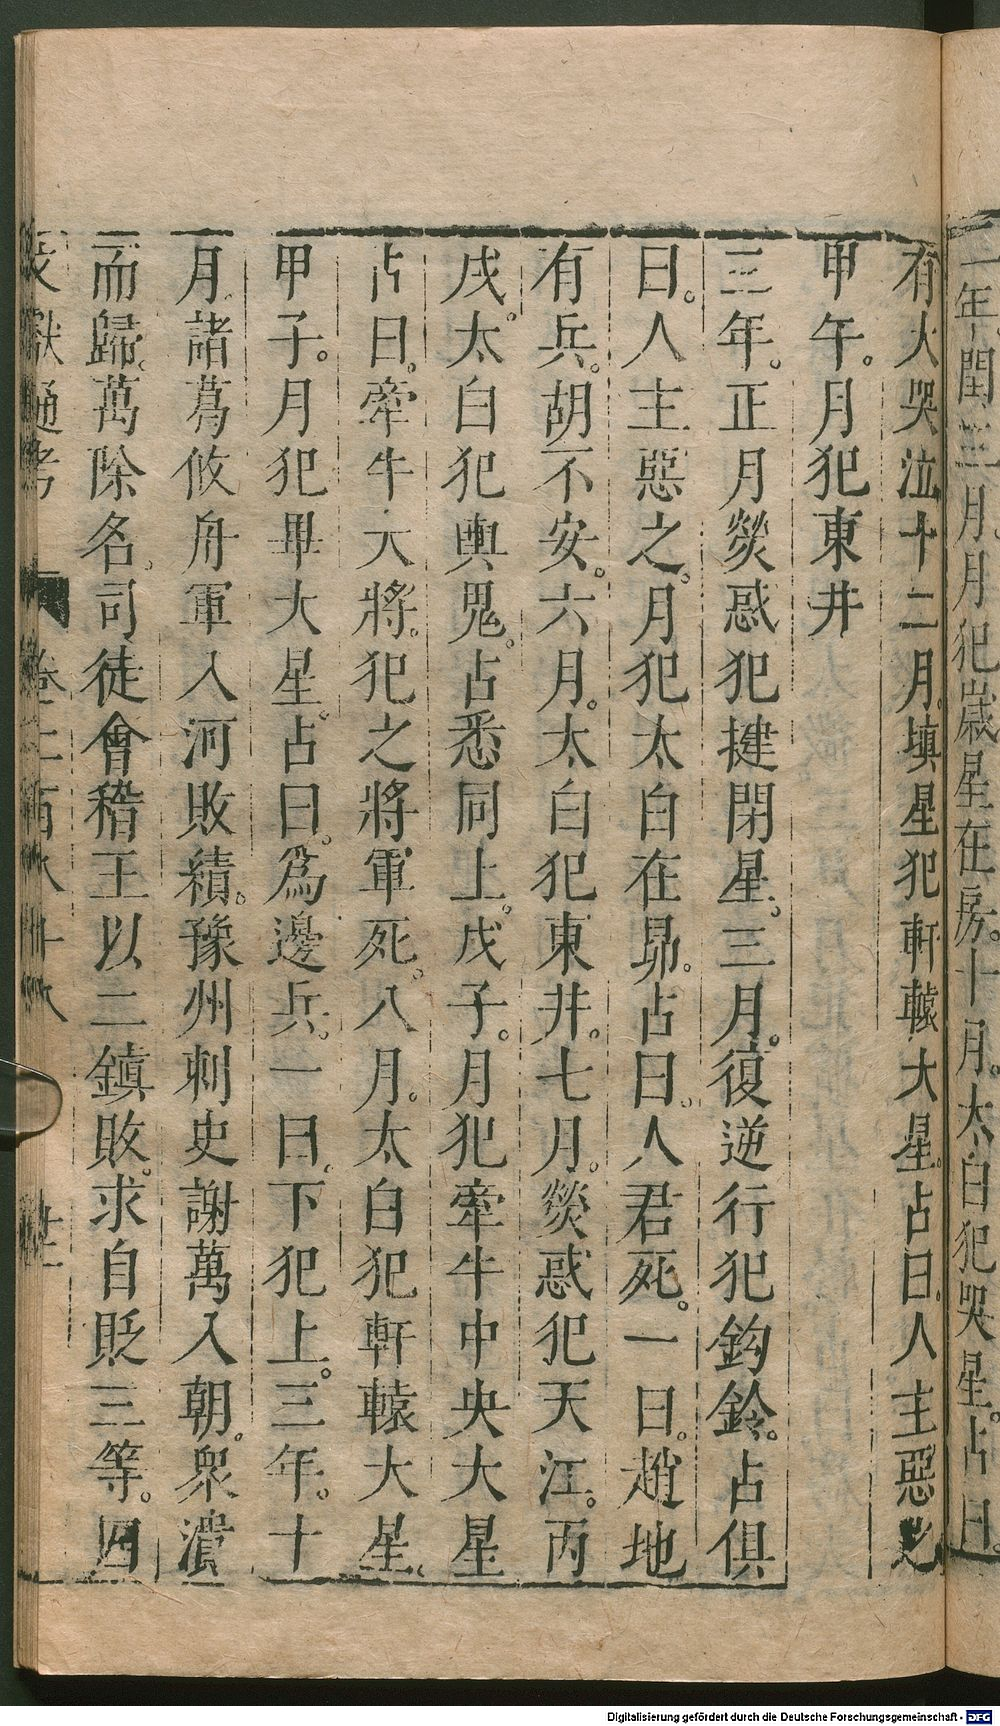 二年。閏三月。月犯歲星在房。十月。太白犯哭星。占曰。
有大哭泣十二月。填星犯軒轅大星。占曰。人主惡之
甲午。月犯東井
三年。正月熒惑犯揵閉星。三月。復逆行犯鈎鈴。占俱
曰。人主惡之。月犯太白在昴。占曰。人君死。一曰。趙地
有兵。胡不安。六月。太白犯東井。七月。熒惑犯天江。丙
戌。太白犯輿鬼。占悉同上。戊子。月犯牽牛中央大星
占曰。牽牛大將。犯之將軍死。八月。太白犯軒轅大星。
甲子。月犯畢大星。占曰。爲邊兵。一曰。下犯上。三年。十
月諸葛攸舟軍入河敗績。豫州刺史謝萬入朝。衆潰
而歸。萬除名。司徒會稽王以二鎮敗。求自貶三等。四
文獻通考
卷二百八十八
Digitalisierung gefördert durch die Deutsche Forschungsgemeinschaft - DFG